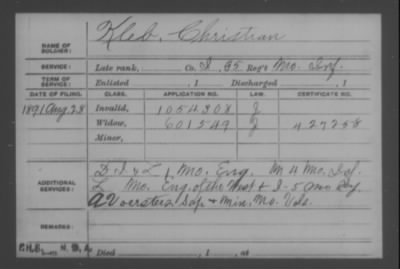 NAME OF SOLDIER: Kleb, Christian
SERVICE: Late rank, Co. I, 65 Reg't Mo. Inf.
TERM OF SERVICE: Enlisted , 1 Discharged , 1
DATE OF FILING. CLASS. APPLICATION NO. LAW. CERTIFICATE NO.
1891 Aug 28 Invalid, 1054308 J
Widow, 601549 J 427258
Minor,
ADDITIONAL SERVICES: D I & L 1 Mo. Eng. M 4 Mo. Inf.
L Mo. Eng. of the West & I-5 Mo Inf.
Voersters Sap. & Min. Mo. Vols.
REMARKS:
Died , 1 , at